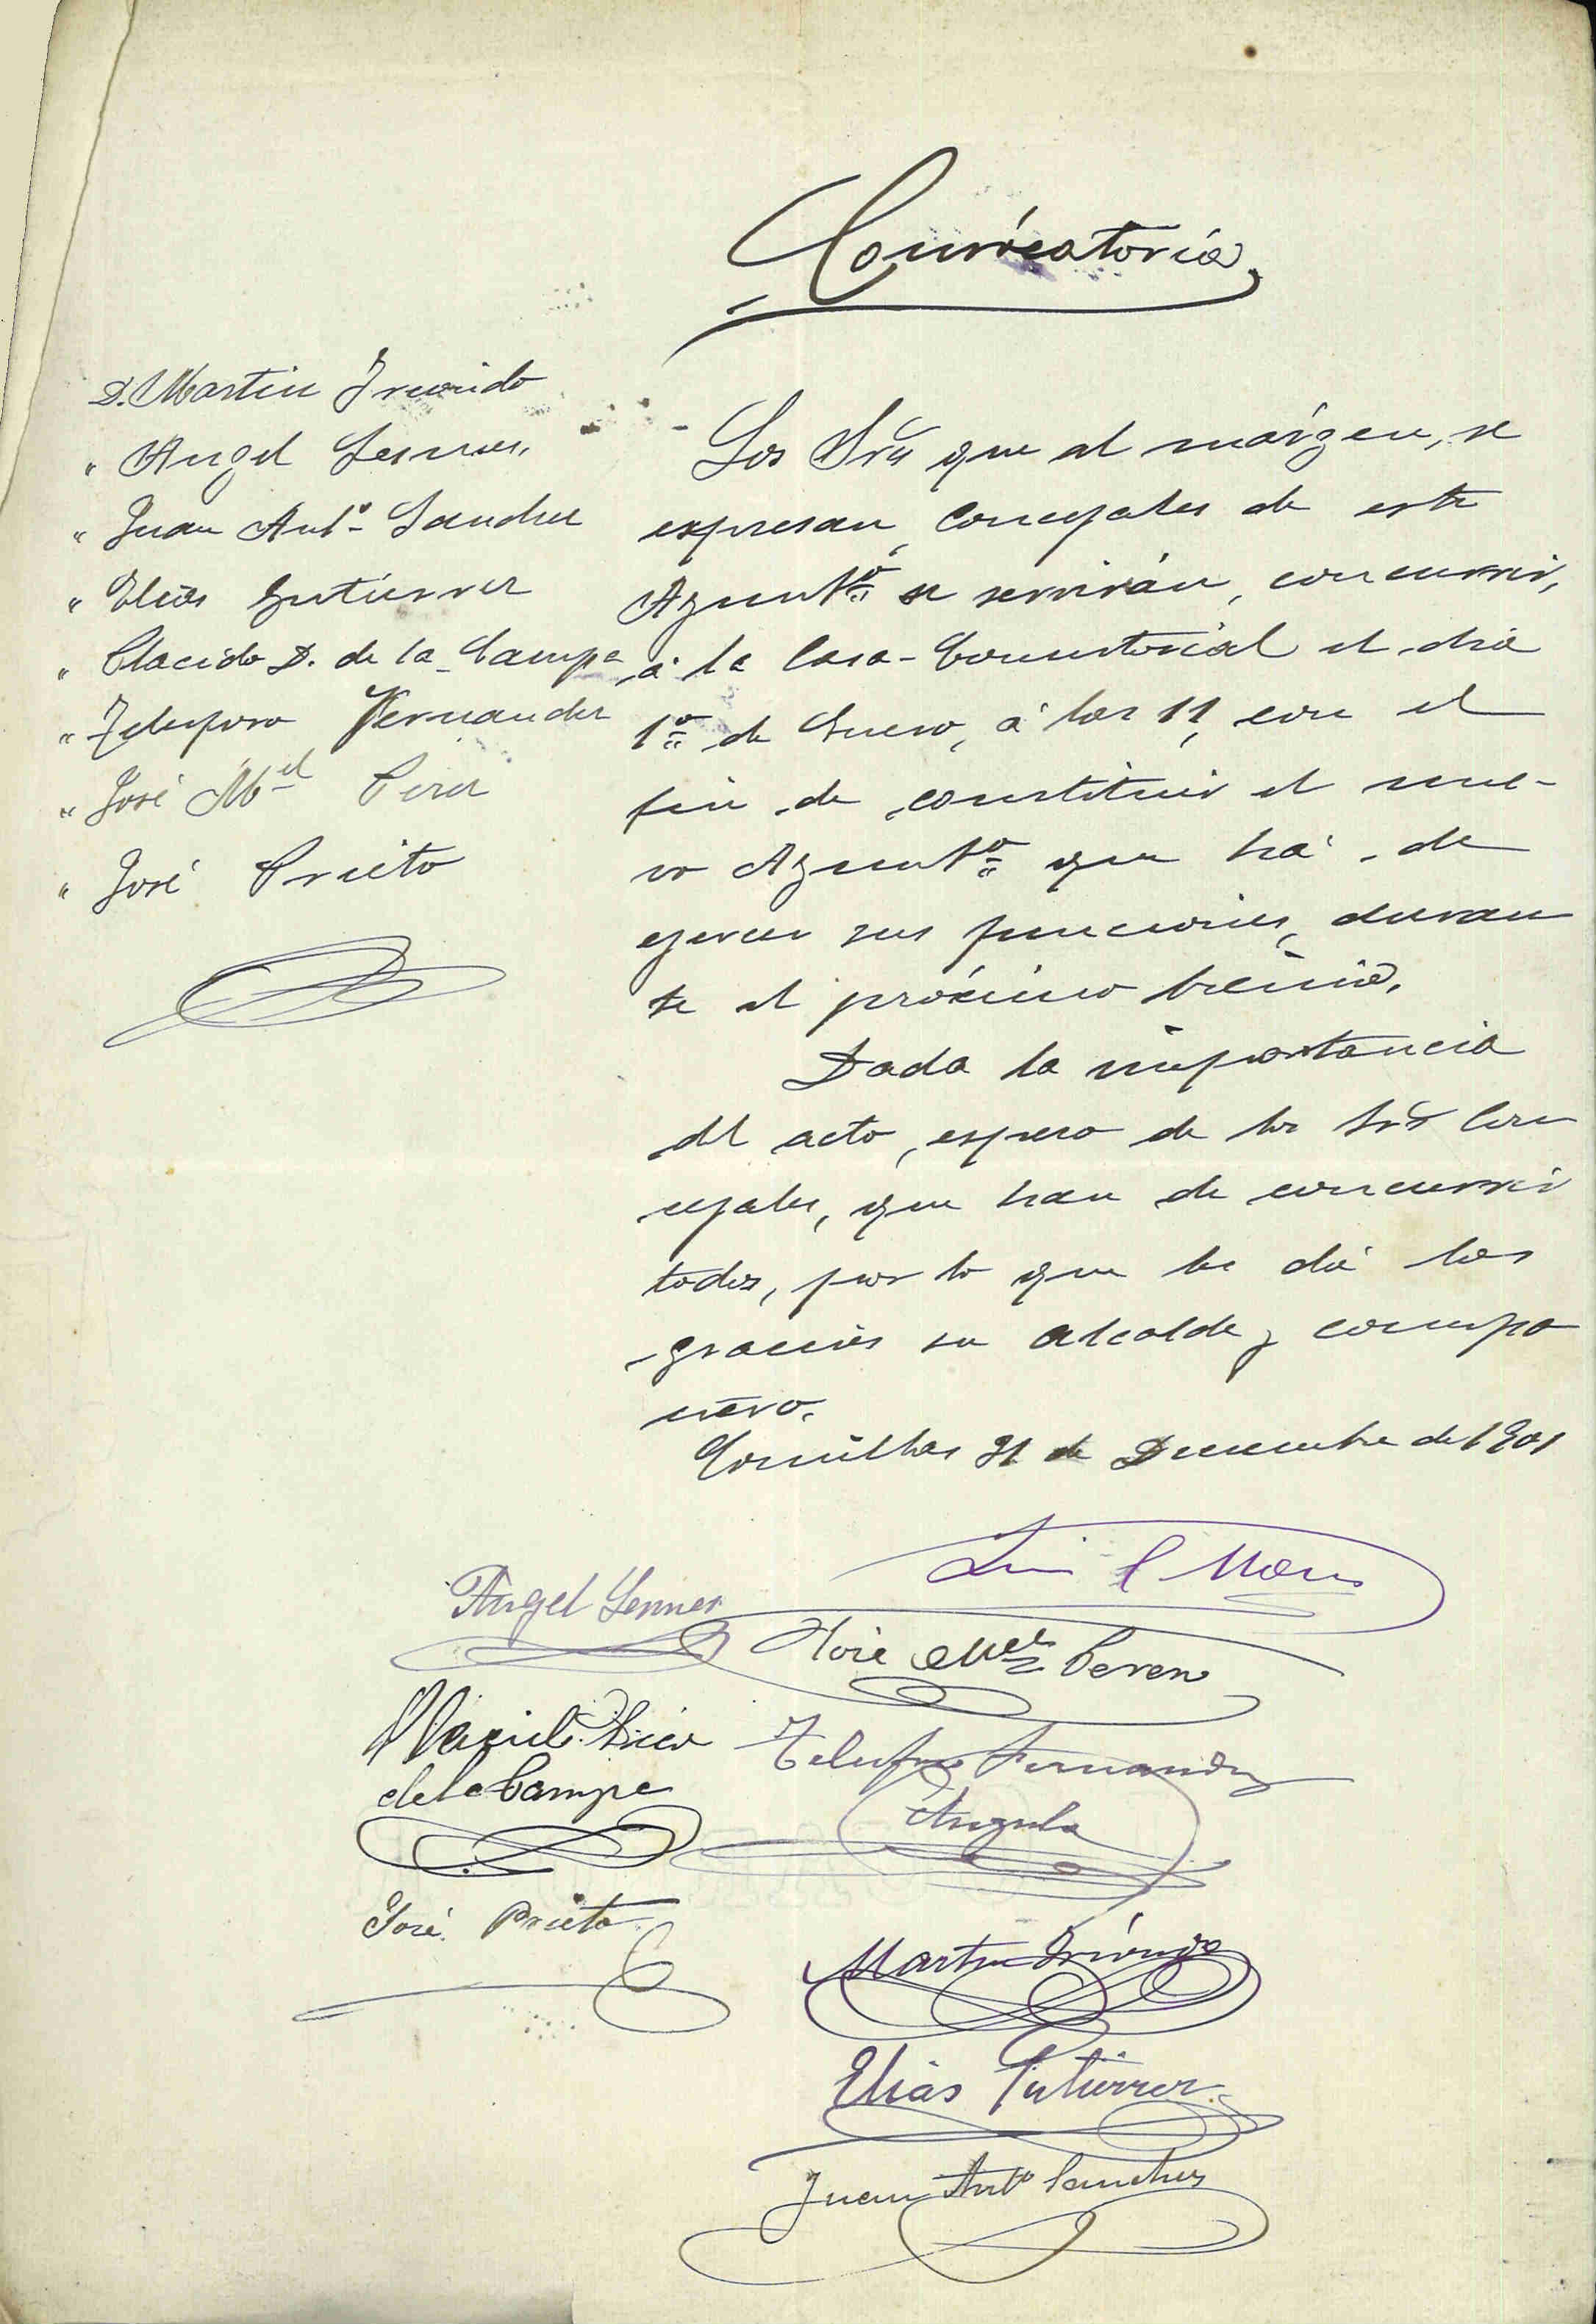 Convócatoria
D. Martin Irurido
" Angel Lesmes,
" Juan Antº Sanchez
" Elias Gutierrez
" Placido D. de la Campa
" Telesforo Fernandez
" José Mel Perez
" José Prieto
Los Srs que al márgen, se
expresan, Concejales de este
Ayuntº se servirán, concurrir,
á la Casa-Consistorial el dia
1º de Enero, á las 11, con el
fin de constituir el nue-
vo Ayuntº que há de
ejercer sus funciones, duran
te el próximo biénio.
Dada la importancia
del acto, espero de los Srs Con
cejales, que han de concurrir
todos, por lo que les dá las
gracias su alcalde y compa
ñero.
Comillas 31 de Diciembre de 1901
Angel Lesmes
José Mel Perez
de la Campa
Telesforo Fernandez
Angulo
José Prieto
Martin
Elias Gutierrez
Juan Antº Sanchez